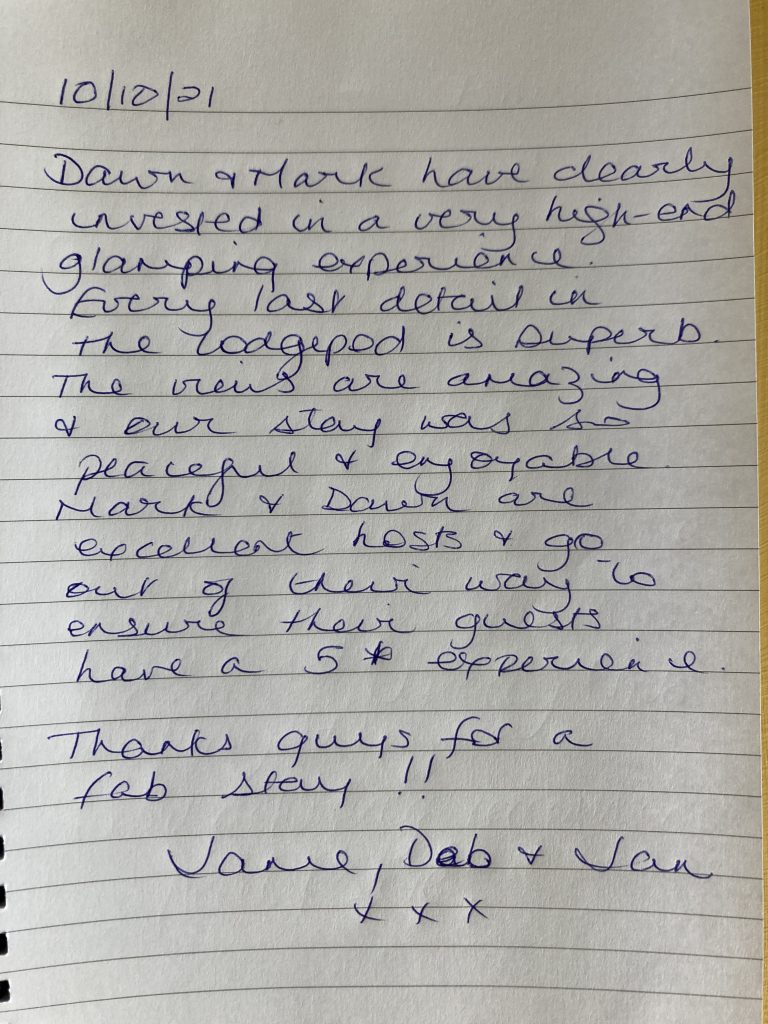 10/10/21
Dawn & Mark have clearly
invested in a very high-end
glamping experience.
Every last detail in
the lodgepod is superb.
The views are amazing
& our stay was so
peaceful & enjoyable.
Mark & Dawn are
excellent hosts & go
out of their way to
ensure their guests
have a 5* experience.
Thanks guys for a
fab stay!!
Jane, Deb & Jan
x x x